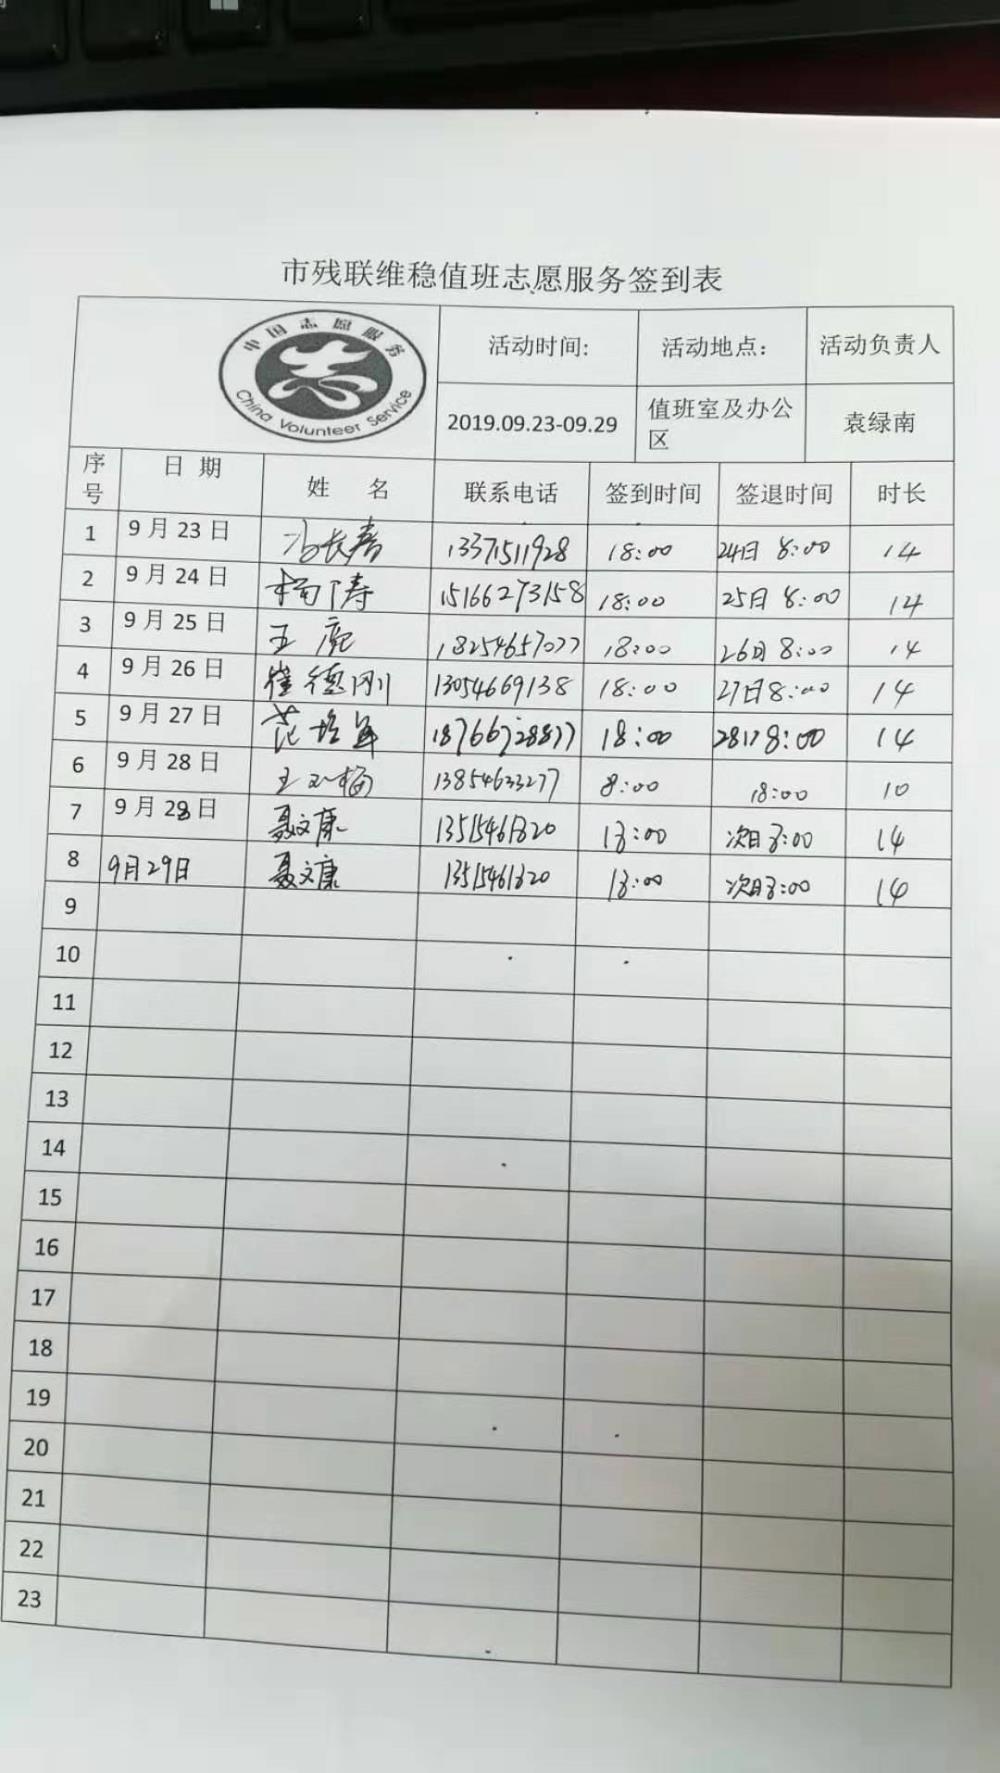 市残联维稳值班志愿服务签到表
中国志愿服务
China Volunteer Service
活动时间: 活动地点： 活动负责人
2019.09.23-09.29 值班室及办公区 袁绿南
序号 日 期 姓 名 联系电话 签到时间 签退时间 时长
1 9月23日 冯长春 13371511928 18:00 24日 8:00 14
2 9月24日 15166273158 18:00 25日 8:00 14
3 9月25日 18254657077 18:00 26日 8:00 14
4 9月26日 崔德刚 13054669138 18:00 27日 8:00 14
5 9月27日 18766728877 18:00 28日 8:00 14
6 9月28日 13854633277 8:00 18:00 10
7 9月28日 聂文康 13515461820 18:00 次日8:00 14
8 9月29日 聂文康 13515461820 18:00 次日8:00 14
9
10
11
12
13
14
15
16
17
18
19
20
21
22
23